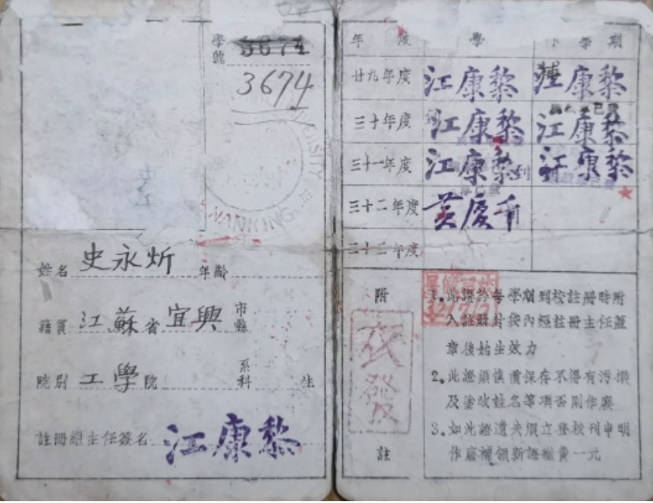 學號 3674
3674
UNIVERSITY
NANKING
姓名 史永炘 年齡
籍貫 江蘇省宜興 市縣
院別 工學院 系科 生
註冊組主任簽名 江康黎
年度 學 下學期
廿九年度 江康黎 江康黎
三十年度 江康黎 江康黎
三十一年度 江康黎 江康黎
三十二年度 黃慶千
附註
1. 此證於每學期到校註冊時附
入註冊封袋內經註冊主任蓋
章後始生效力
2. 此證須慎重保存不得有污損
及塗改姓名等項否則作廢
3. 如此證遺失須立登校刊申明
作廢補領新證繳費一元